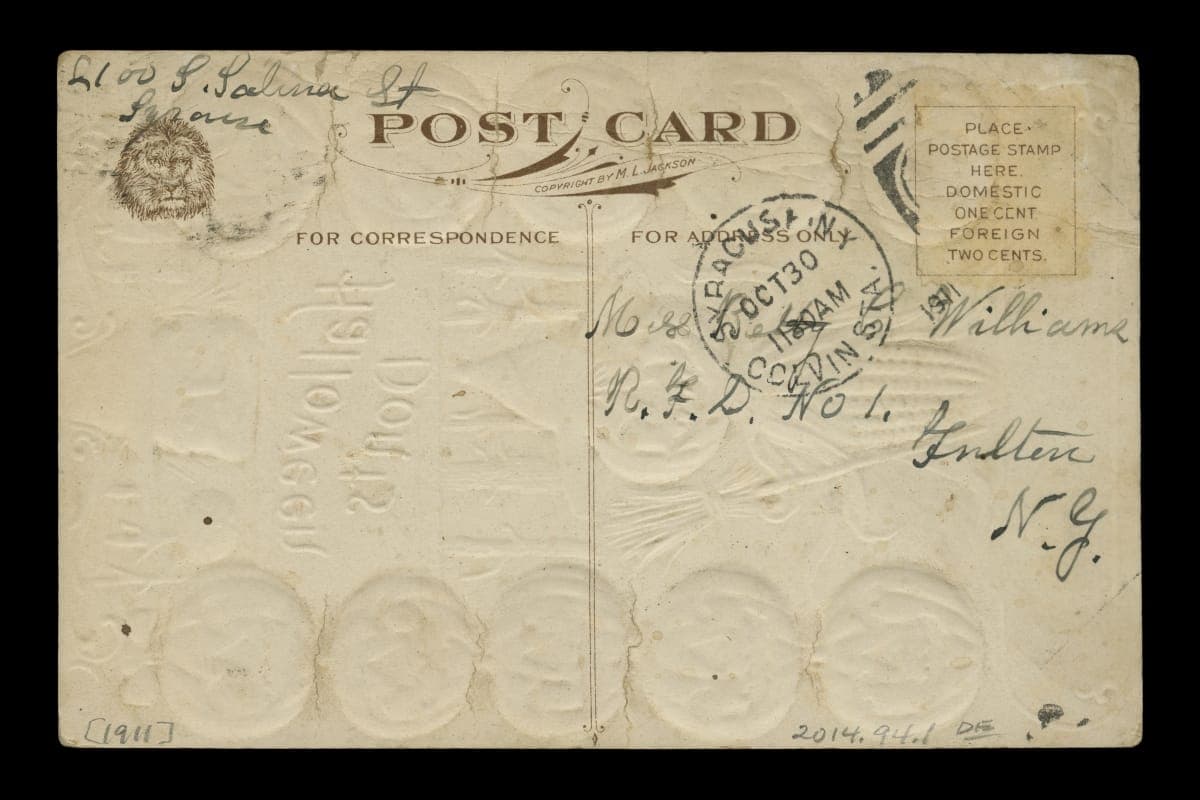 2100 S. Salina St
POST CARD
COPYRIGHT BY M. L. JACKSON
FOR CORRESPONDENCE
FOR ADDRESS ONLY
PLACE
POSTAGE STAMP
HERE.
DOMESTIC
ONE CENT
FOREIGN
TWO CENTS.
SYRACUSE, N.Y.
OCT 30
1130AM
COLVIN STA.
1911
Miss Williams
R.F.D. No 1.
Fulton
N.Y.
Hallowe'en
Don'ts
[1911]
2014.94.1 DE